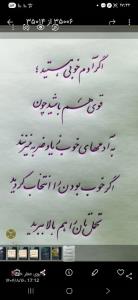 ۳۵۰۰۶ از ۳۵۰۱۴
اگر آدم خوبی هستید؛
قوی هم باشید چون
به آدمهای خوب زیاد ضربه میزنند
اگر خوب بودن را انتخاب کردید
تحملتان را هم بالا ببرید